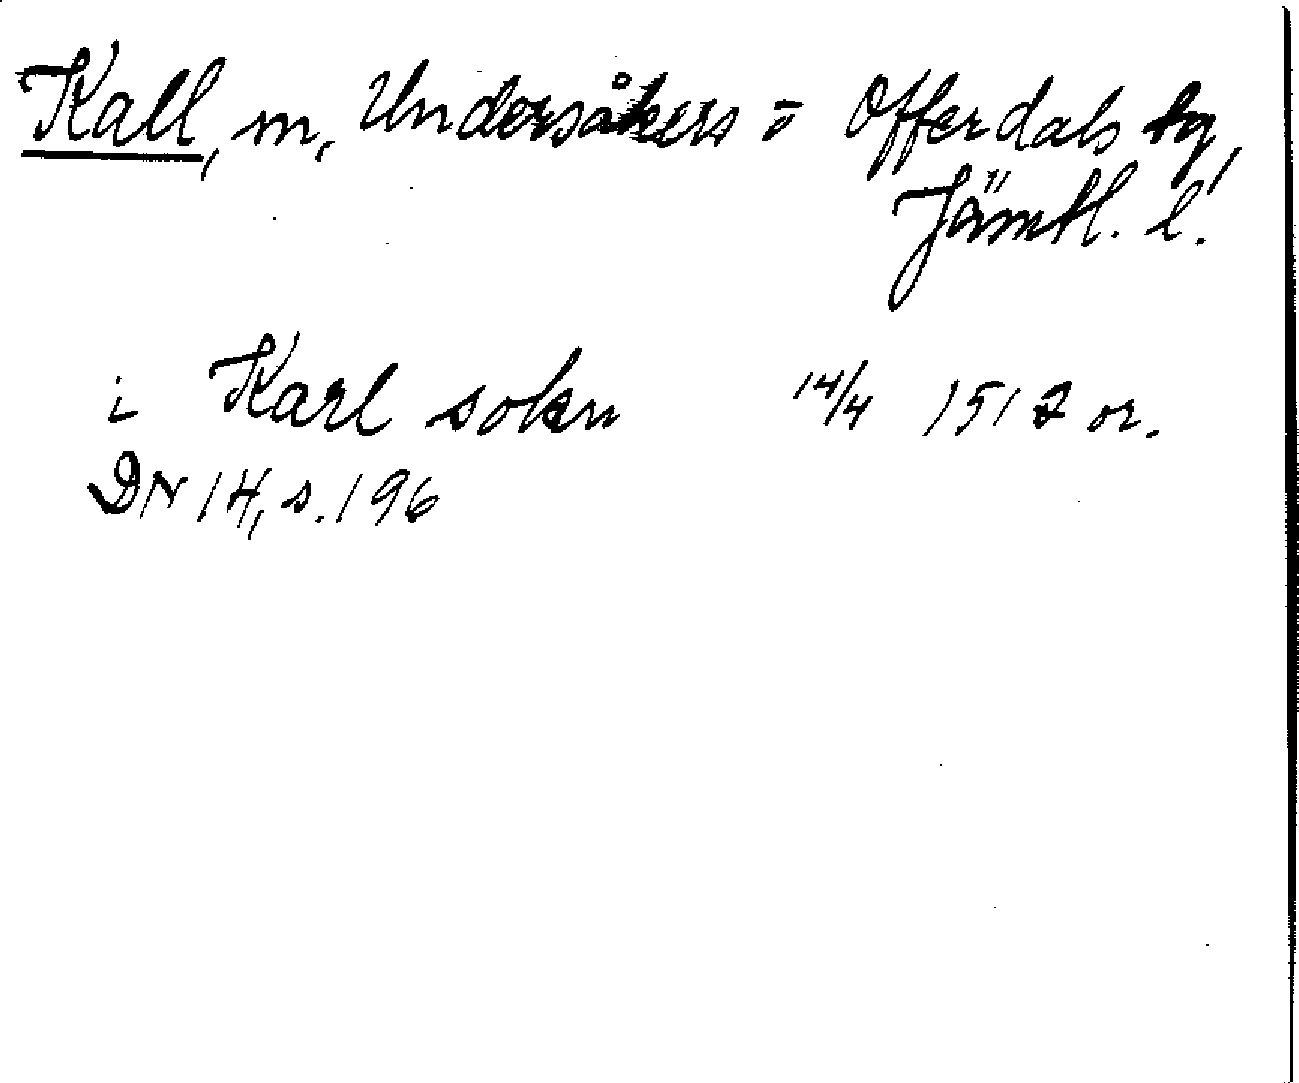 Kall, m, Undersåkers = Offerdals tg,
Jämtl. l.
i Karl sokn 14/4 1512 or.
DN 14, s. 196